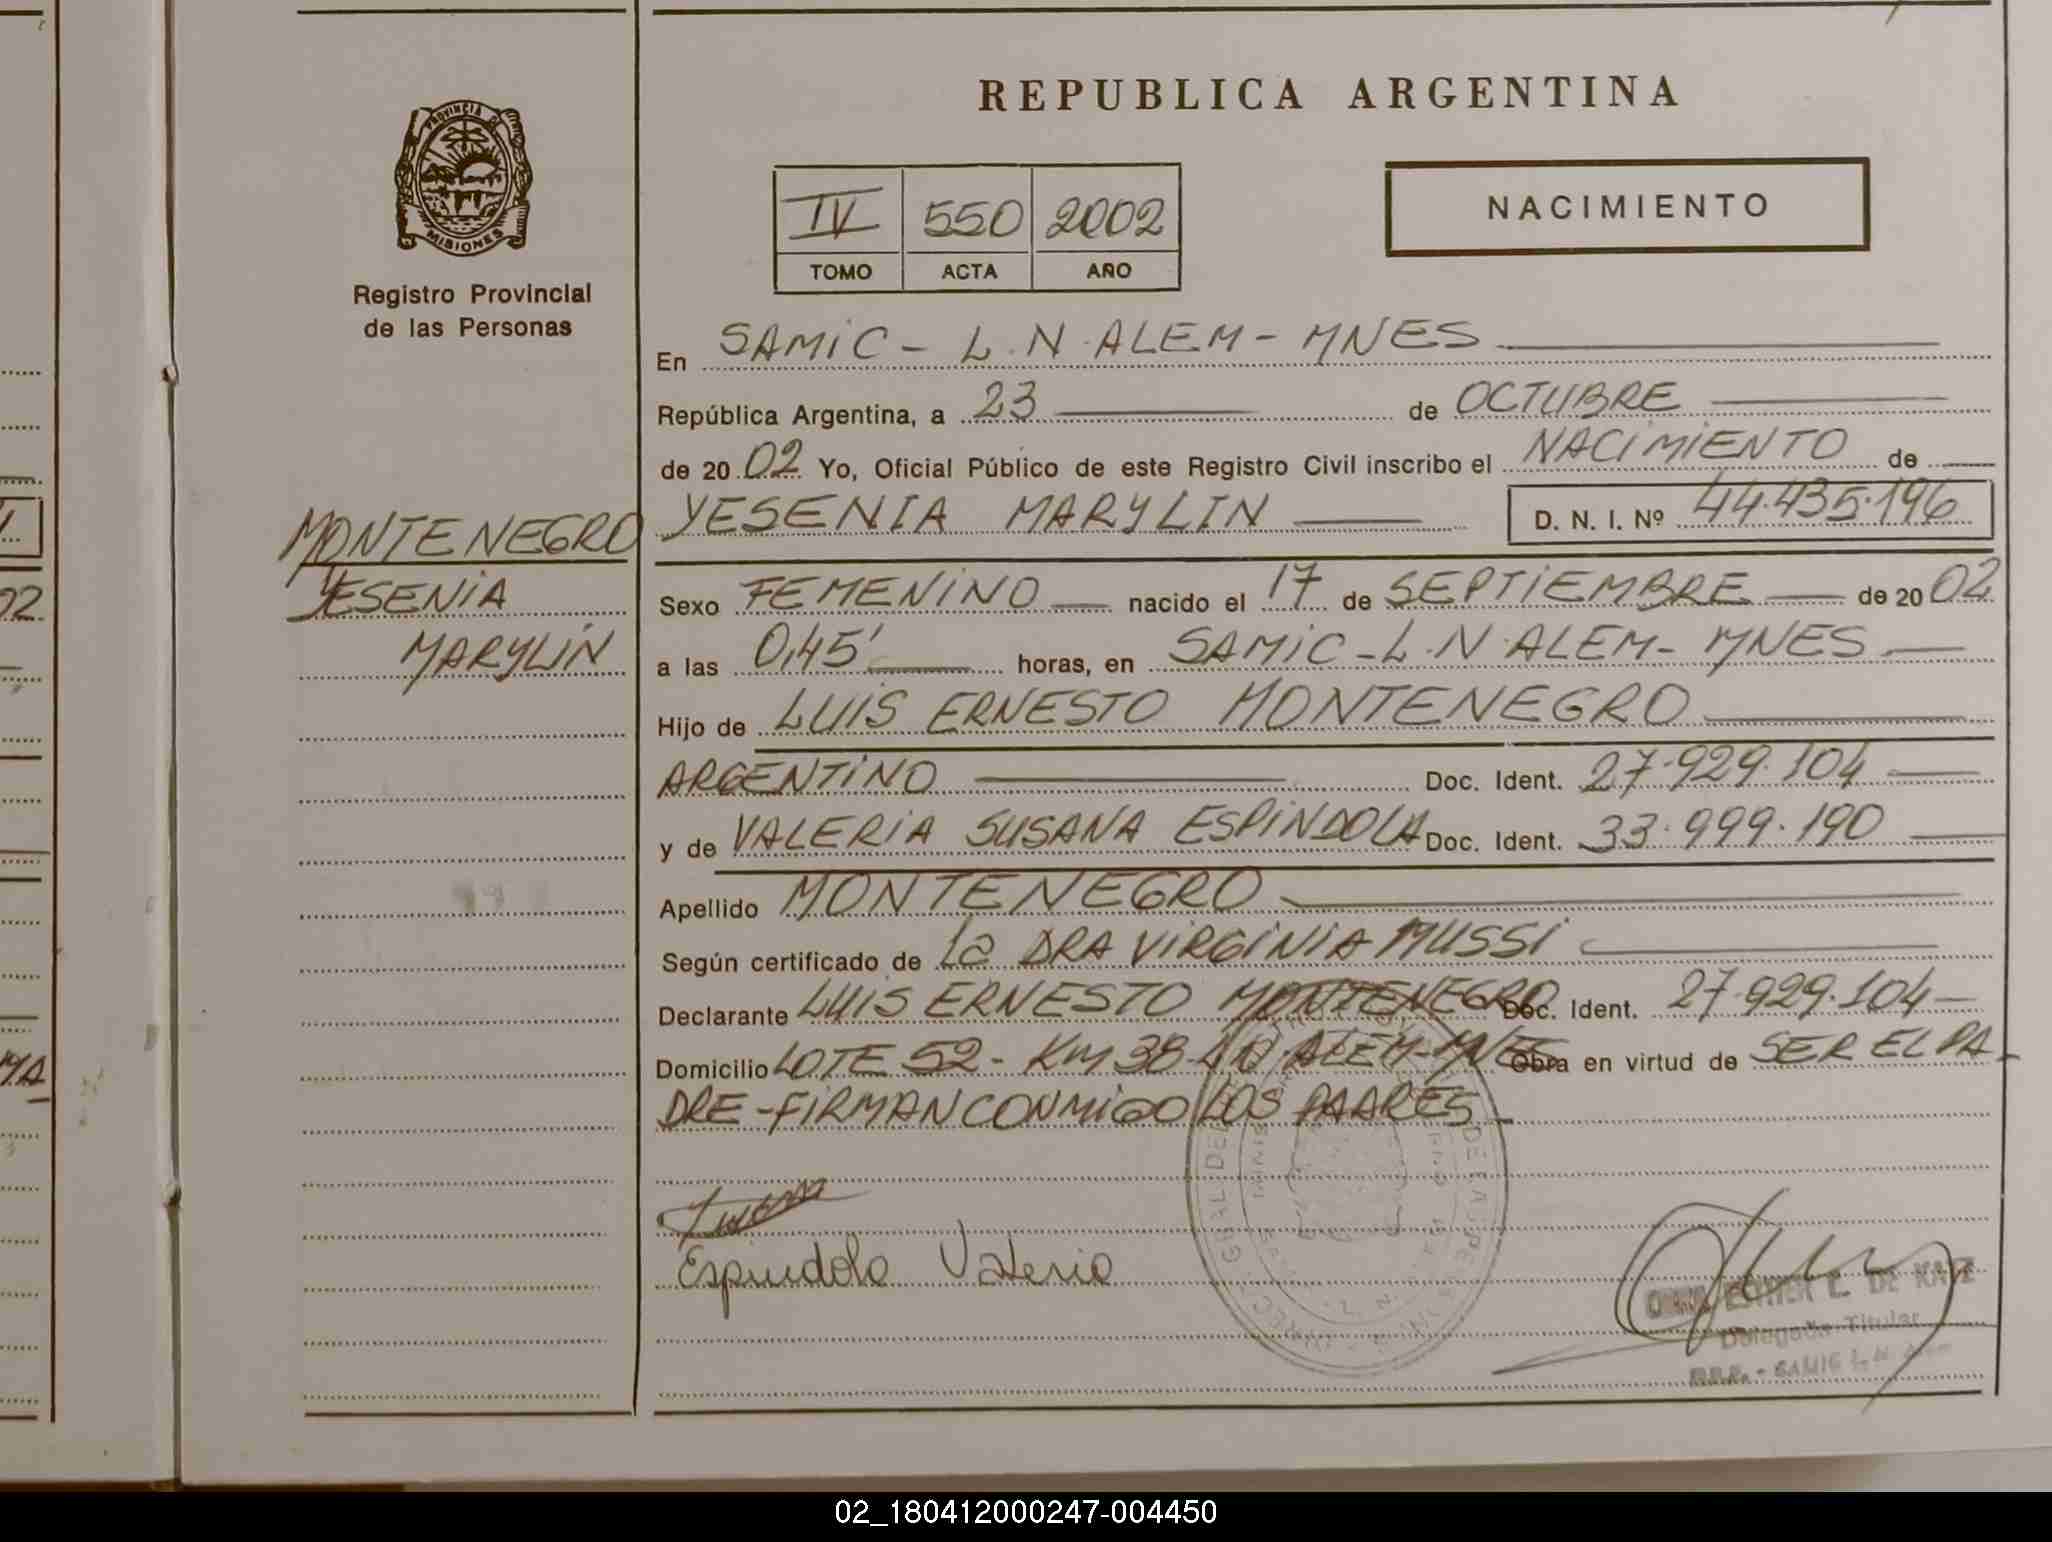 REPUBLICA ARGENTINA
PROVINCIA DE
MISIONES
Registro Provincial
de las Personas
IV 550 2002
TOMO ACTA AÑO
NACIMIENTO
En SAMIC - L.N. ALEM - MNES
República Argentina, a 23 de OCTUBRE
de 2002 Yo, Oficial Público de este Registro Civil inscribo el NACIMIENTO de
YESENIA MARYLIN D. N. I. Nº 44.435.196
MONTENEGRO
YESENIA
MARYLIN
Sexo FEMENINO nacido el 17 de SEPTIEMBRE de 2002
a las 0,45' horas, en SAMIC - L.N. ALEM - MNES
Hijo de LUIS ERNESTO MONTENEGRO
ARGENTINO Doc. Ident. 27.929.104
y de VALERIA SUSANA ESPINDOLA Doc. Ident. 33.999.190
Apellido MONTENEGRO
Según certificado de la DRA VIRGINIA MUSSI
Declarante LUIS ERNESTO MONTENEGRO Doc. Ident. 27.929.104
Domicilio LOTE 52 - KM 38 - L.N. ALEM - MNES Obra en virtud de SER EL PA-
DRE - FIRMAN CONMIGO LOS PADRES -
Espindola Valeria
ESTHER E. DE
Delegada Titular
R.P.P. - SAMIC L. N. Alem
02
02_180412000247-004450